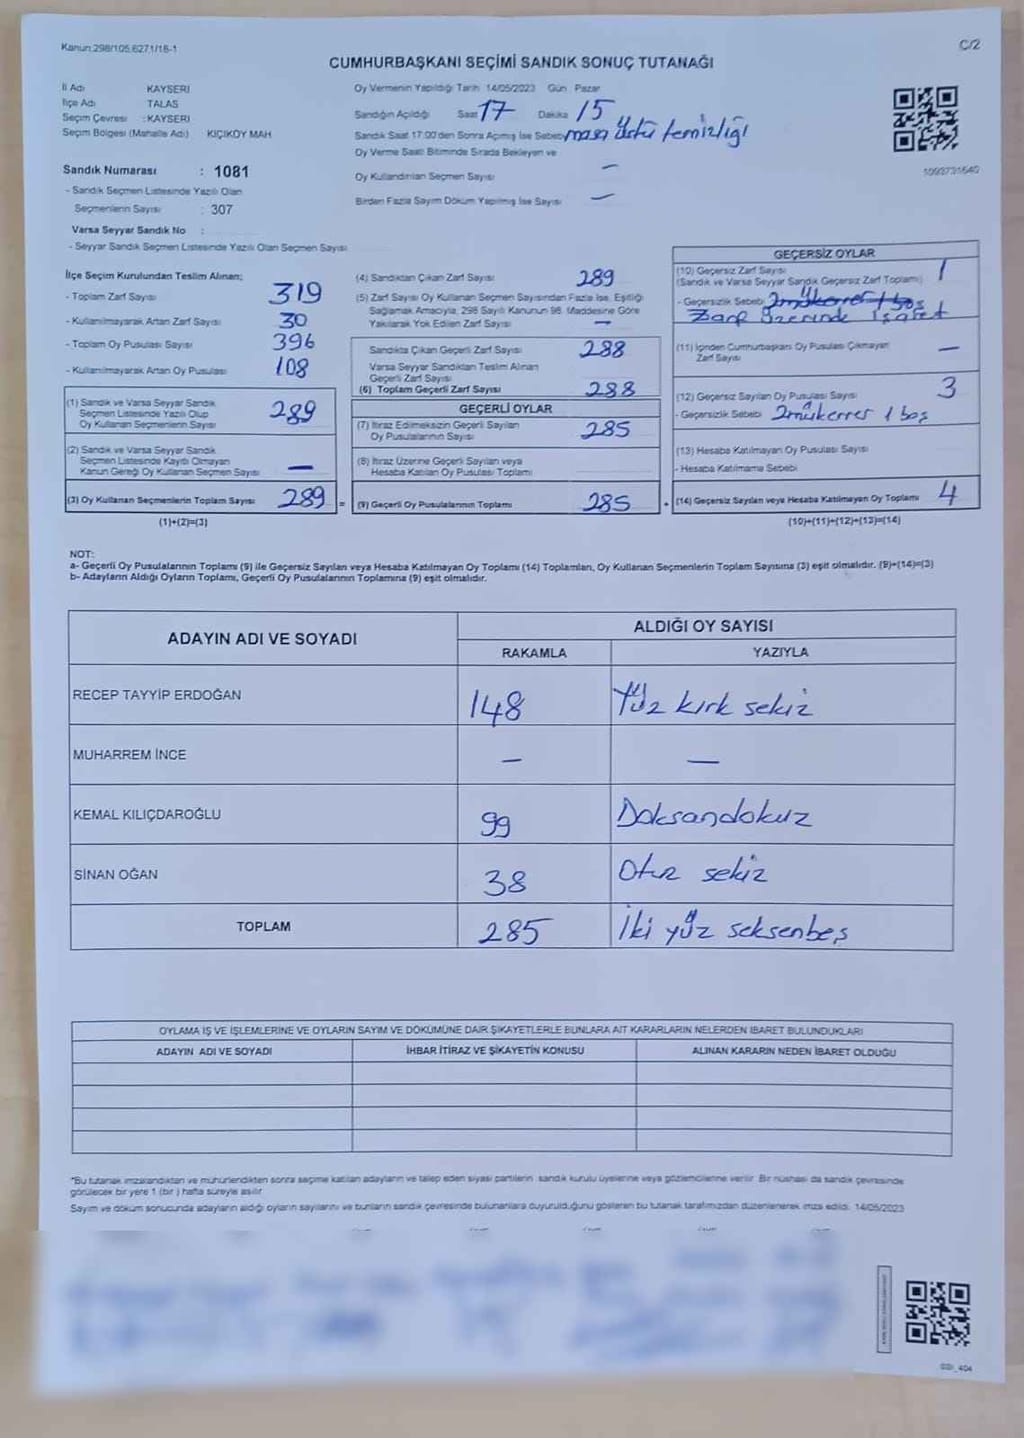 Kanun:298/105,6271/16-1
C/2
CUMHURBAŞKANI SEÇİMİ SANDIK SONUÇ TUTANAĞI
İl Adı KAYSERİ
İlçe Adı TALAS
Seçim Çevresi : KAYSERİ
Seçim Bölgesi (Mahalle Adı) KIÇIKÖY MAH
Sandık Numarası : 1081
- Sandık Seçmen Listesinde Yazılı Olan
Seçmenlerin Sayısı : 307
Varsa Seyyar Sandık No :
- Seyyar Sandık Seçmen Listesinde Yazılı Olan Seçmen Sayısı
Oy Vermenin Yapıldığı Tarih 14/05/2023 Gün Pazar
Sandığın Açıldığı Saat 17 Dakika 15
Sandık Saat 17.00'den Sonra Açılmış İse Sebebi masa üstü temizliği
Oy Verme Saati Bitiminde Sırada Bekleyen ve
Oy Kullandırılan Seçmen Sayısı —
Birden Fazla Sayım Döküm Yapılmış İse Sayısı —
1093731640
İlçe Seçim Kurulundan Teslim Alınan;
- Toplam Zarf Sayısı 319
- Kullanılmayarak Artan Zarf Sayısı 30
- Toplam Oy Pusulası Sayısı 396
- Kullanılmayarak Artan Oy Pusulası 108
(1) Sandık ve Varsa Seyyar Sandık
Seçmen Listesinde Yazılı Olup
Oy Kullanan Seçmenlerin Sayısı 289
(2) Sandık ve Varsa Seyyar Sandık
Seçmen Listesinde Kayıtlı Olmayan
Kanun Gereği Oy Kullanan Seçmen Sayısı —
(3) Oy Kullanan Seçmenlerin Toplam Sayısı 289 =
(1)+(2)=(3)
(4) Sandıktan Çıkan Zarf Sayısı 289
(5) Zarf Sayısı Oy Kullanan Seçmen Sayısından Fazla İse, Eşitliği
Sağlamak Amacıyla, 298 Sayılı Kanunun 98. Maddesine Göre
Yakılarak Yok Edilen Zarf Sayısı —
Sandıkta Çıkan Geçerli Zarf Sayısı 288
Varsa Seyyar Sandıktan Teslim Alınan
Geçerli Zarf Sayısı
(6) Toplam Geçerli Zarf Sayısı 288
GEÇERLİ OYLAR
(7) İtiraz Edilmeksizin Geçerli Sayılan
Oy Pusulalarının Sayısı 285
(8) İtiraz Üzerine Geçerli Sayılan veya
Hesaba Katılan Oy Pusulası Toplamı
(9) Geçerli Oy Pusulalarının Toplamı 285 +
GEÇERSİZ OYLAR
(10) Geçersiz Zarf Sayısı 1
(Sandık ve Varsa Seyyar Sandık Geçersiz Zarf Toplamı)
- Geçersizlik Sebebi 2mükerrer 1 boş
Zarf üzerinde işaret
(11) İçinden Cumhurbaşkanı Oy Pusulası Çıkmayan
Zarf Sayısı —
(12) Geçersiz Sayılan Oy Pusulası Sayısı 3
- Geçersizlik Sebebi 2mükerrer 1 boş
(13) Hesaba Katılmayan Oy Pusulası Sayısı
- Hesaba Katılmama Sebebi
(14) Geçersiz Sayılan veya Hesaba Katılmayan Oy Toplamı 4
(10)+(11)+(12)+(13)=(14)
NOT:
a- Geçerli Oy Pusulalarının Toplamı (9) ile Geçersiz Sayılan veya Hesaba Katılmayan Oy Toplamı (14) Toplamları, Oy Kullanan Seçmenlerin Toplam Sayısına (3) eşit olmalıdır. (9)+(14)=(3)
b- Adayların Aldığı Oyların Toplamı, Geçerli Oy Pusulalarının Toplamına (9) eşit olmalıdır.
ADAYIN ADI VE SOYADI ALDIĞI OY SAYISI
RAKAMLA YAZIYLA
RECEP TAYYİP ERDOĞAN 148 Yüz kırk sekiz
MUHARREM İNCE — —
KEMAL KILIÇDAROĞLU 99 Doksandokuz
SİNAN OĞAN 38 Otuz sekiz
TOPLAM 285 İki yüz seksenbeş
OYLAMA İŞ VE İŞLEMLERİNE VE OYLARIN SAYIM VE DÖKÜMÜNE DAİR ŞİKAYETLERLE BUNLARA AİT KARARLARIN NELERDEN İBARET BULUNDUKLARI
ADAYIN ADI VE SOYADI İHBAR İTİRAZ VE ŞİKAYETİN KONUSU ALINAN KARARIN NEDEN İBARET OLDUĞU
*Bu tutanak imzalandıktan ve mühürlendikten sonra seçime katılan adayların ve talep eden siyasi partilerin sandık kurulu üyelerine veya gözlemcilerine verilir. Bir nüshası da sandık çevresinde
görülecek bir yere 1 (bir) hafta süreyle asılır
Sayım ve döküm sonucunda adayların aldığı oyların sayılarını ve bunların sandık çevresinde bulunanlara duyurulduğunu gösteren bu tutanak tarafımızdan düzenlenerek imza edildi. 14/05/2023